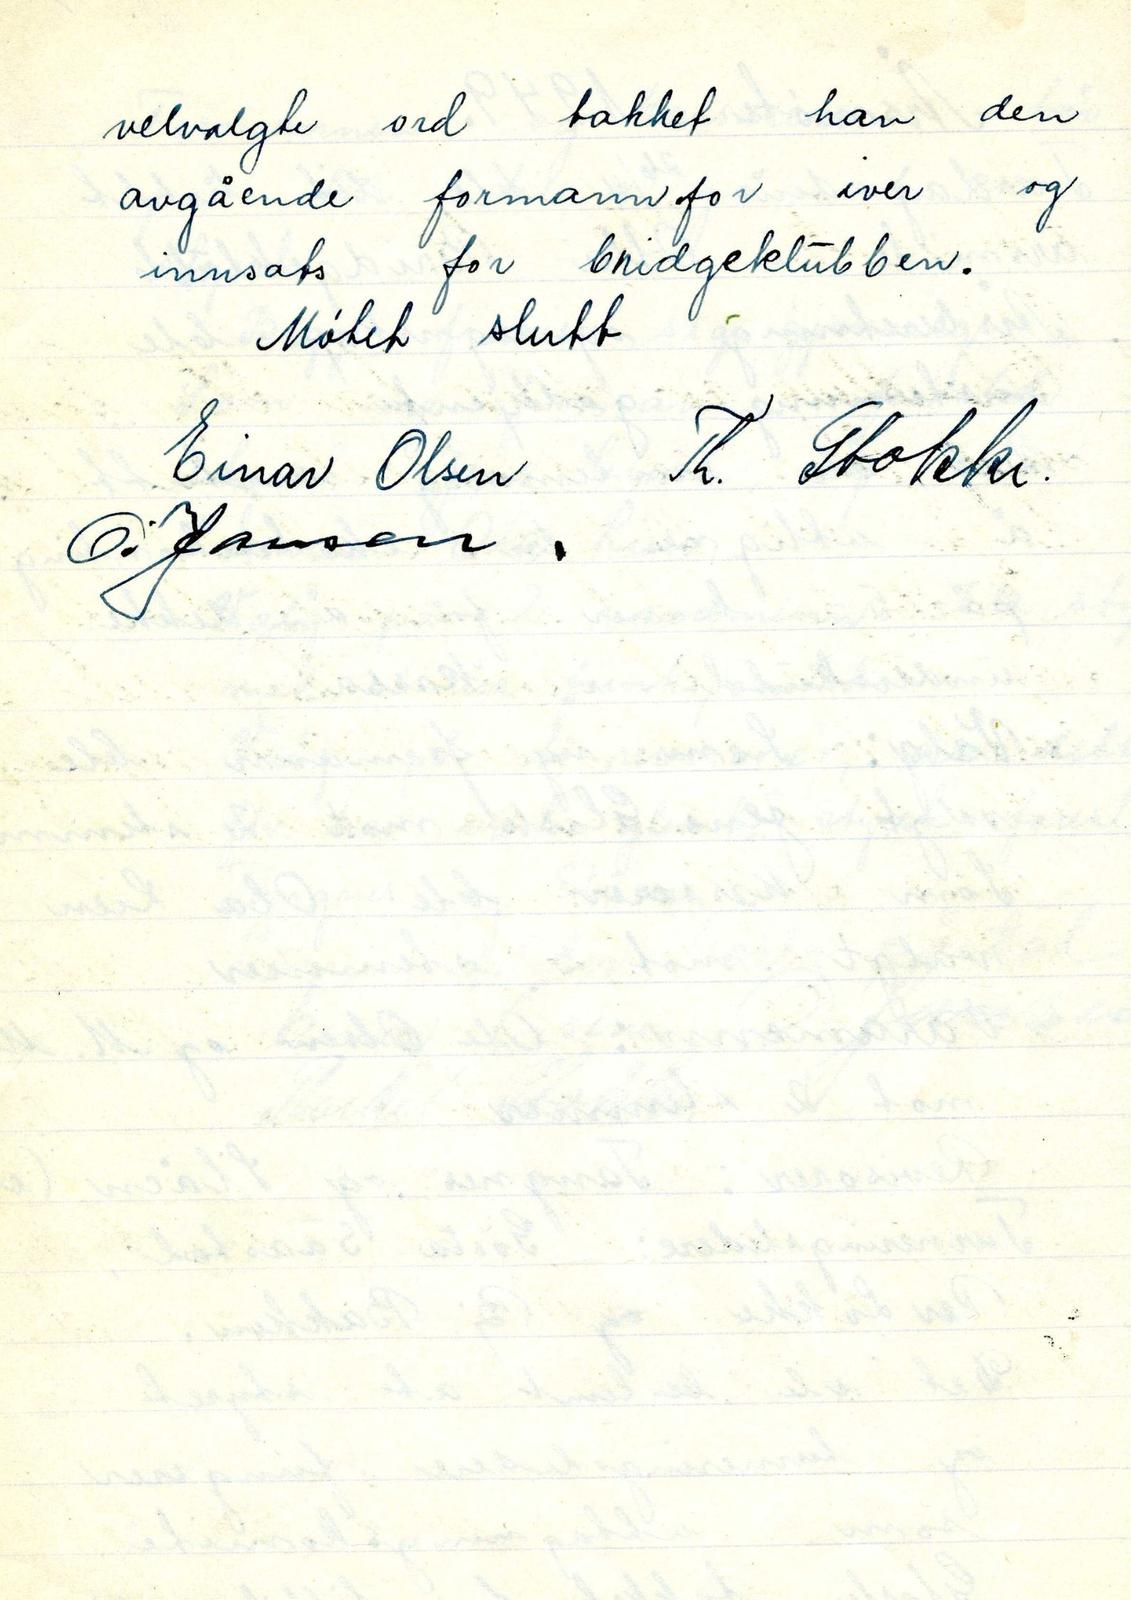 velvalgte ord takket han den
avgående formann for iver og
innsats for bridgeklubben.
Møtet slutt
Einar Olsen Th. Stokke.
O. Jansen.